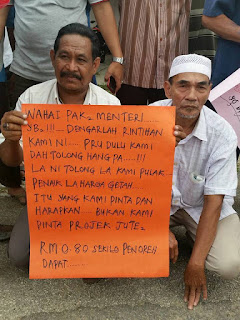 NAHAI PAK2 MENTERI
SB2!!!... DENGARLAH RINTIHAN
KAMI NI..... PRU DULU KAMI
DAH TOLONG HANG PA.....!!!
LA NI TOLONG LA KAMI PULAK
PENAIK LA HARGA GETAH...
ITU YANG KAMI PINTA DAN
HARAPKAN... BUKAN KAMI
PINTA PROJEK JUTE2
RM0.80 SEKILO PENOREH
DAPAT.......